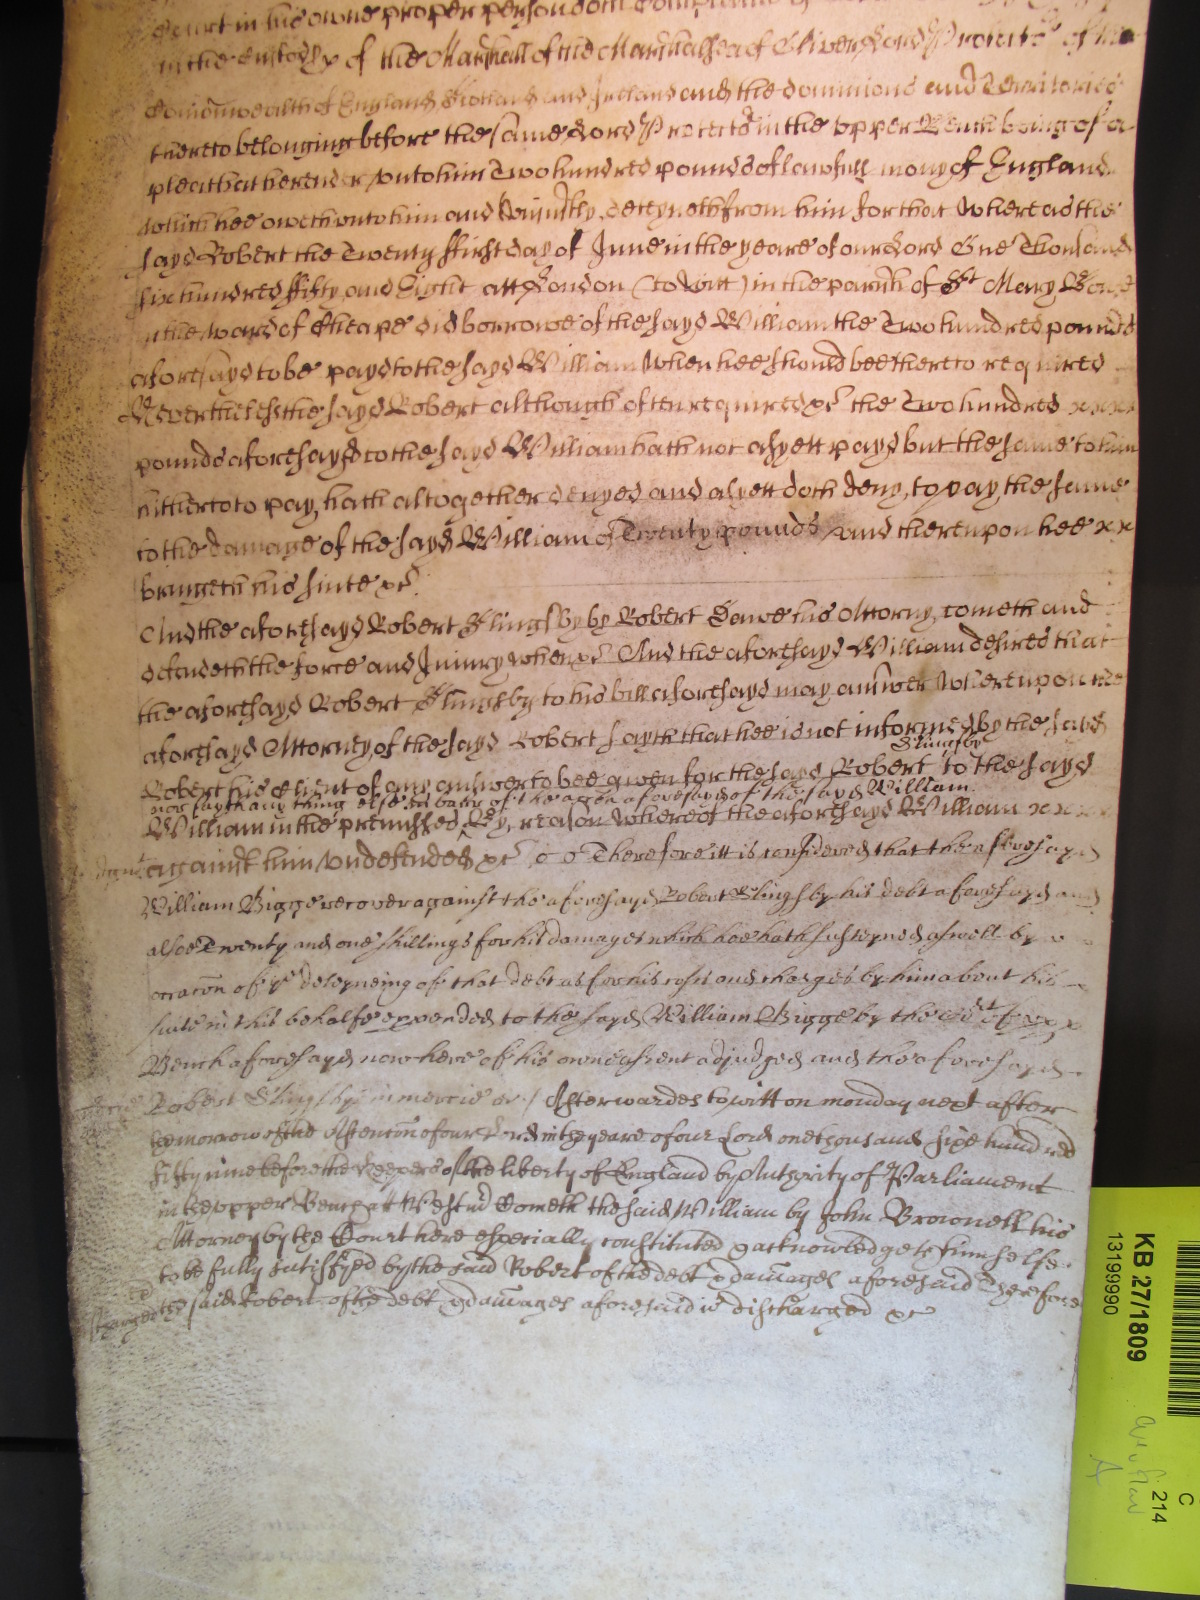 Court in his owne proper person doth
in the custody of the Marshall of the Marshalsea of Oliver Lord Protector of the
Comonwealth of England Scotland and Ireland and the dominions and Territories
thereto belonging before the same Lord Protector in the upper Bench being of a
plea that he render unto him Two hundred pounds of lawfull mony of England
which hee oweth unto him and Unjustly deteyneth from him for that Whereas the
sayd Robert the Twenty ffirst day of June in the yeare of our Lord One Thousand
six hundred ffifty and Eight att London (to witt) in the parish of St Mary Bowe
in the ward of Cheape did borrowe of the sayd William the Two hundred pounds
aforesayd to be payd to the sayd William When hee should bee thereto required
Neverthelesse the sayd Robert although often required &c the Two hundred x x x x
pounds aforesayd to the sayd William hath not asyett payd but the same to him
hitherto to pay, hath altogether denyed and asyett doth deny, to pay the same
to the damage of the sayd William of Twenty pounds And thereupon hee x x
bringeth his suite &c
And the aforesayd Robert Slingsby by Robert Dawe his Attorny, cometh and
defendeth the force and Iniury when &c And the aforesayd William desires that
the aforesayd Robert Slingsby to his bill aforesayd may answer Whereupon the
aforesayd Attorney, of the sayd Robert sayth that hee is not informed by the sayd
Slingsby
Robert his Client of any answer to bee given for the sayd Robert to the sayd
nor sayth any thing else in barr of the accon aforesayd of the sayd William
William in the premisses By, reason whereof the aforesayd William x x x x
against him Undefended &c Therefore itt is considered that the aforesayd
William Bigge recover against the aforesayd Robert Slingsby his debt aforesayd and
alsoe Twenty and one shillings for his damages which hee hath susteyned aswell by
occacon of ye deteyneing of that debt as for his costs and charges by him about his
suite in this behalfe expended to the sayd William Bigge by the Court of upper
Bench aforesayd now here of his owne assent adjudged and the aforesayd
Robert Slingsby in mercie &c / Afterwardes to witt on monday next after
the morrow of the Ascencon of our Lord in the yeare of our Lord one thousand sixe hundred
fifty nine before the Keepers of the liberty of England by Authority of Parliament
in the upper Bench att Westmr Cometh the said William by John Brownell his
Attorney by the Court here especially constituted & acknowledgeth himselfe
to be fully satisfyed by the said Robert of the debt & damages aforesaid Therefore
the said Robert of the debt & damages aforesaid is discharged &c
KB 27/1809
13199990
C
214
A